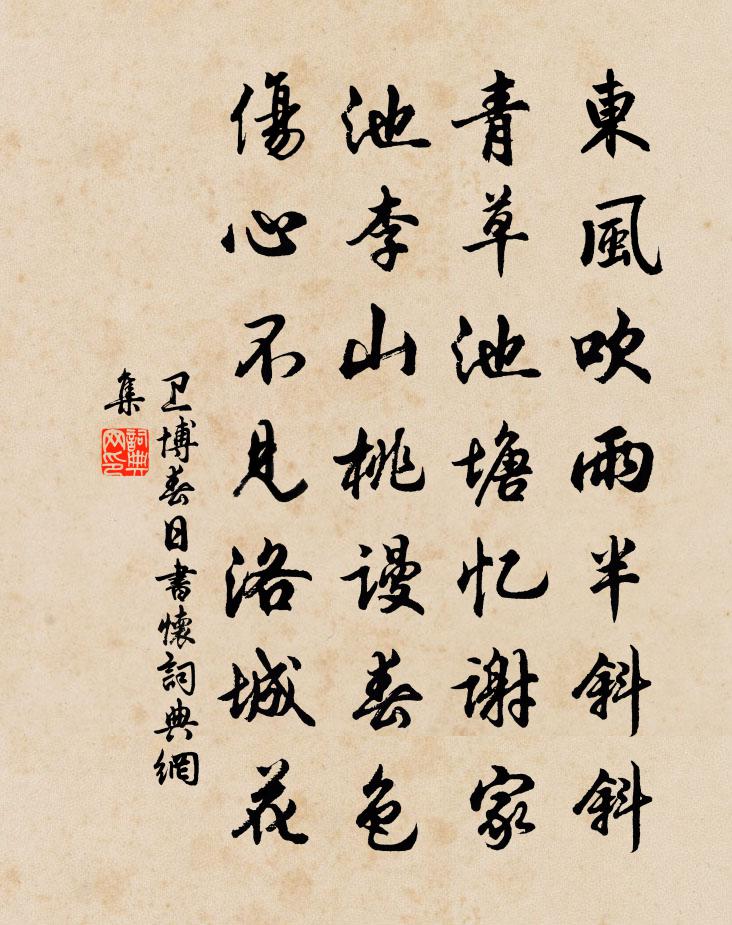 東風吹雨半斜斜
青草池塘忆謝家
池李山桃謾春色
傷心不見洛城花
卫博春日書懷詞典網
集
詞典
网印